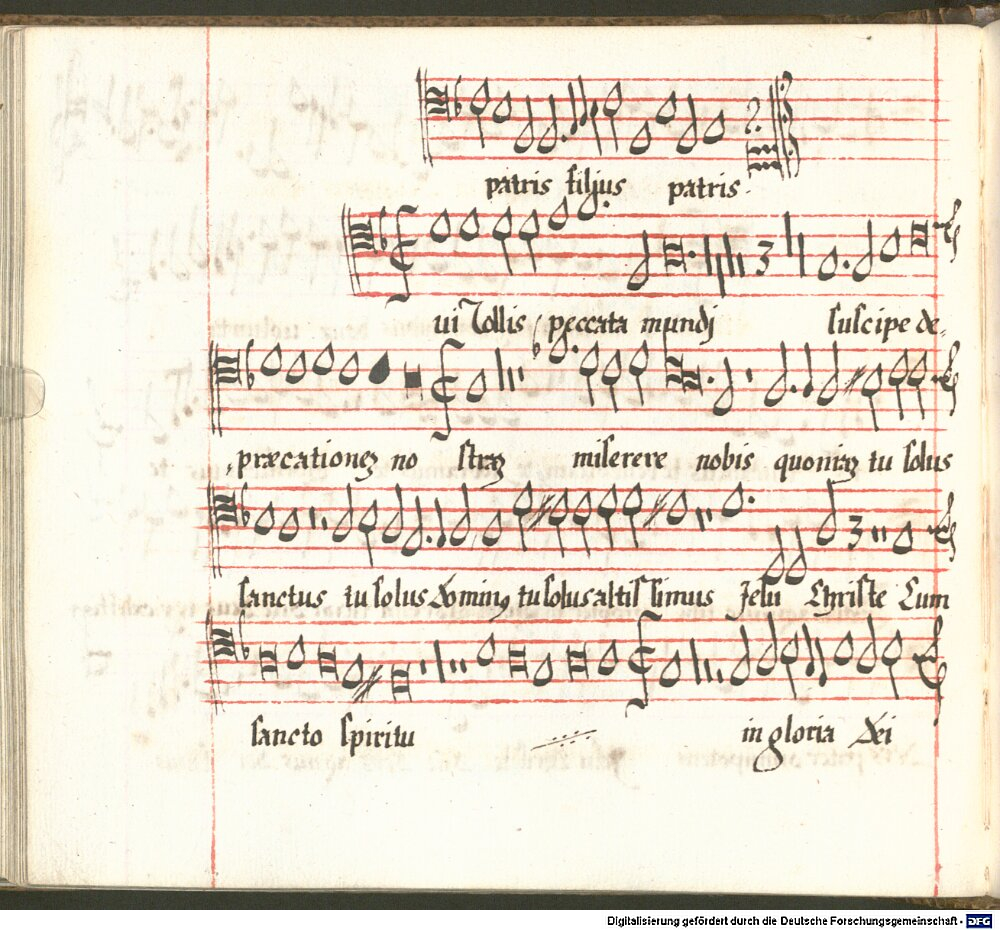 patris filius patris
ui Tollis peccata mundj suscipe de,
,præcationeʒ no straʒ miserere nobis quoniaʒ tu solus
sanctus tu solus Dominꝰ tu solus altissimus Jesu Christe Cum
sancto spiritu in gloria Dei
Digitalisierung gefördert durch die Deutsche Forschungsgemeinschaft - DFG